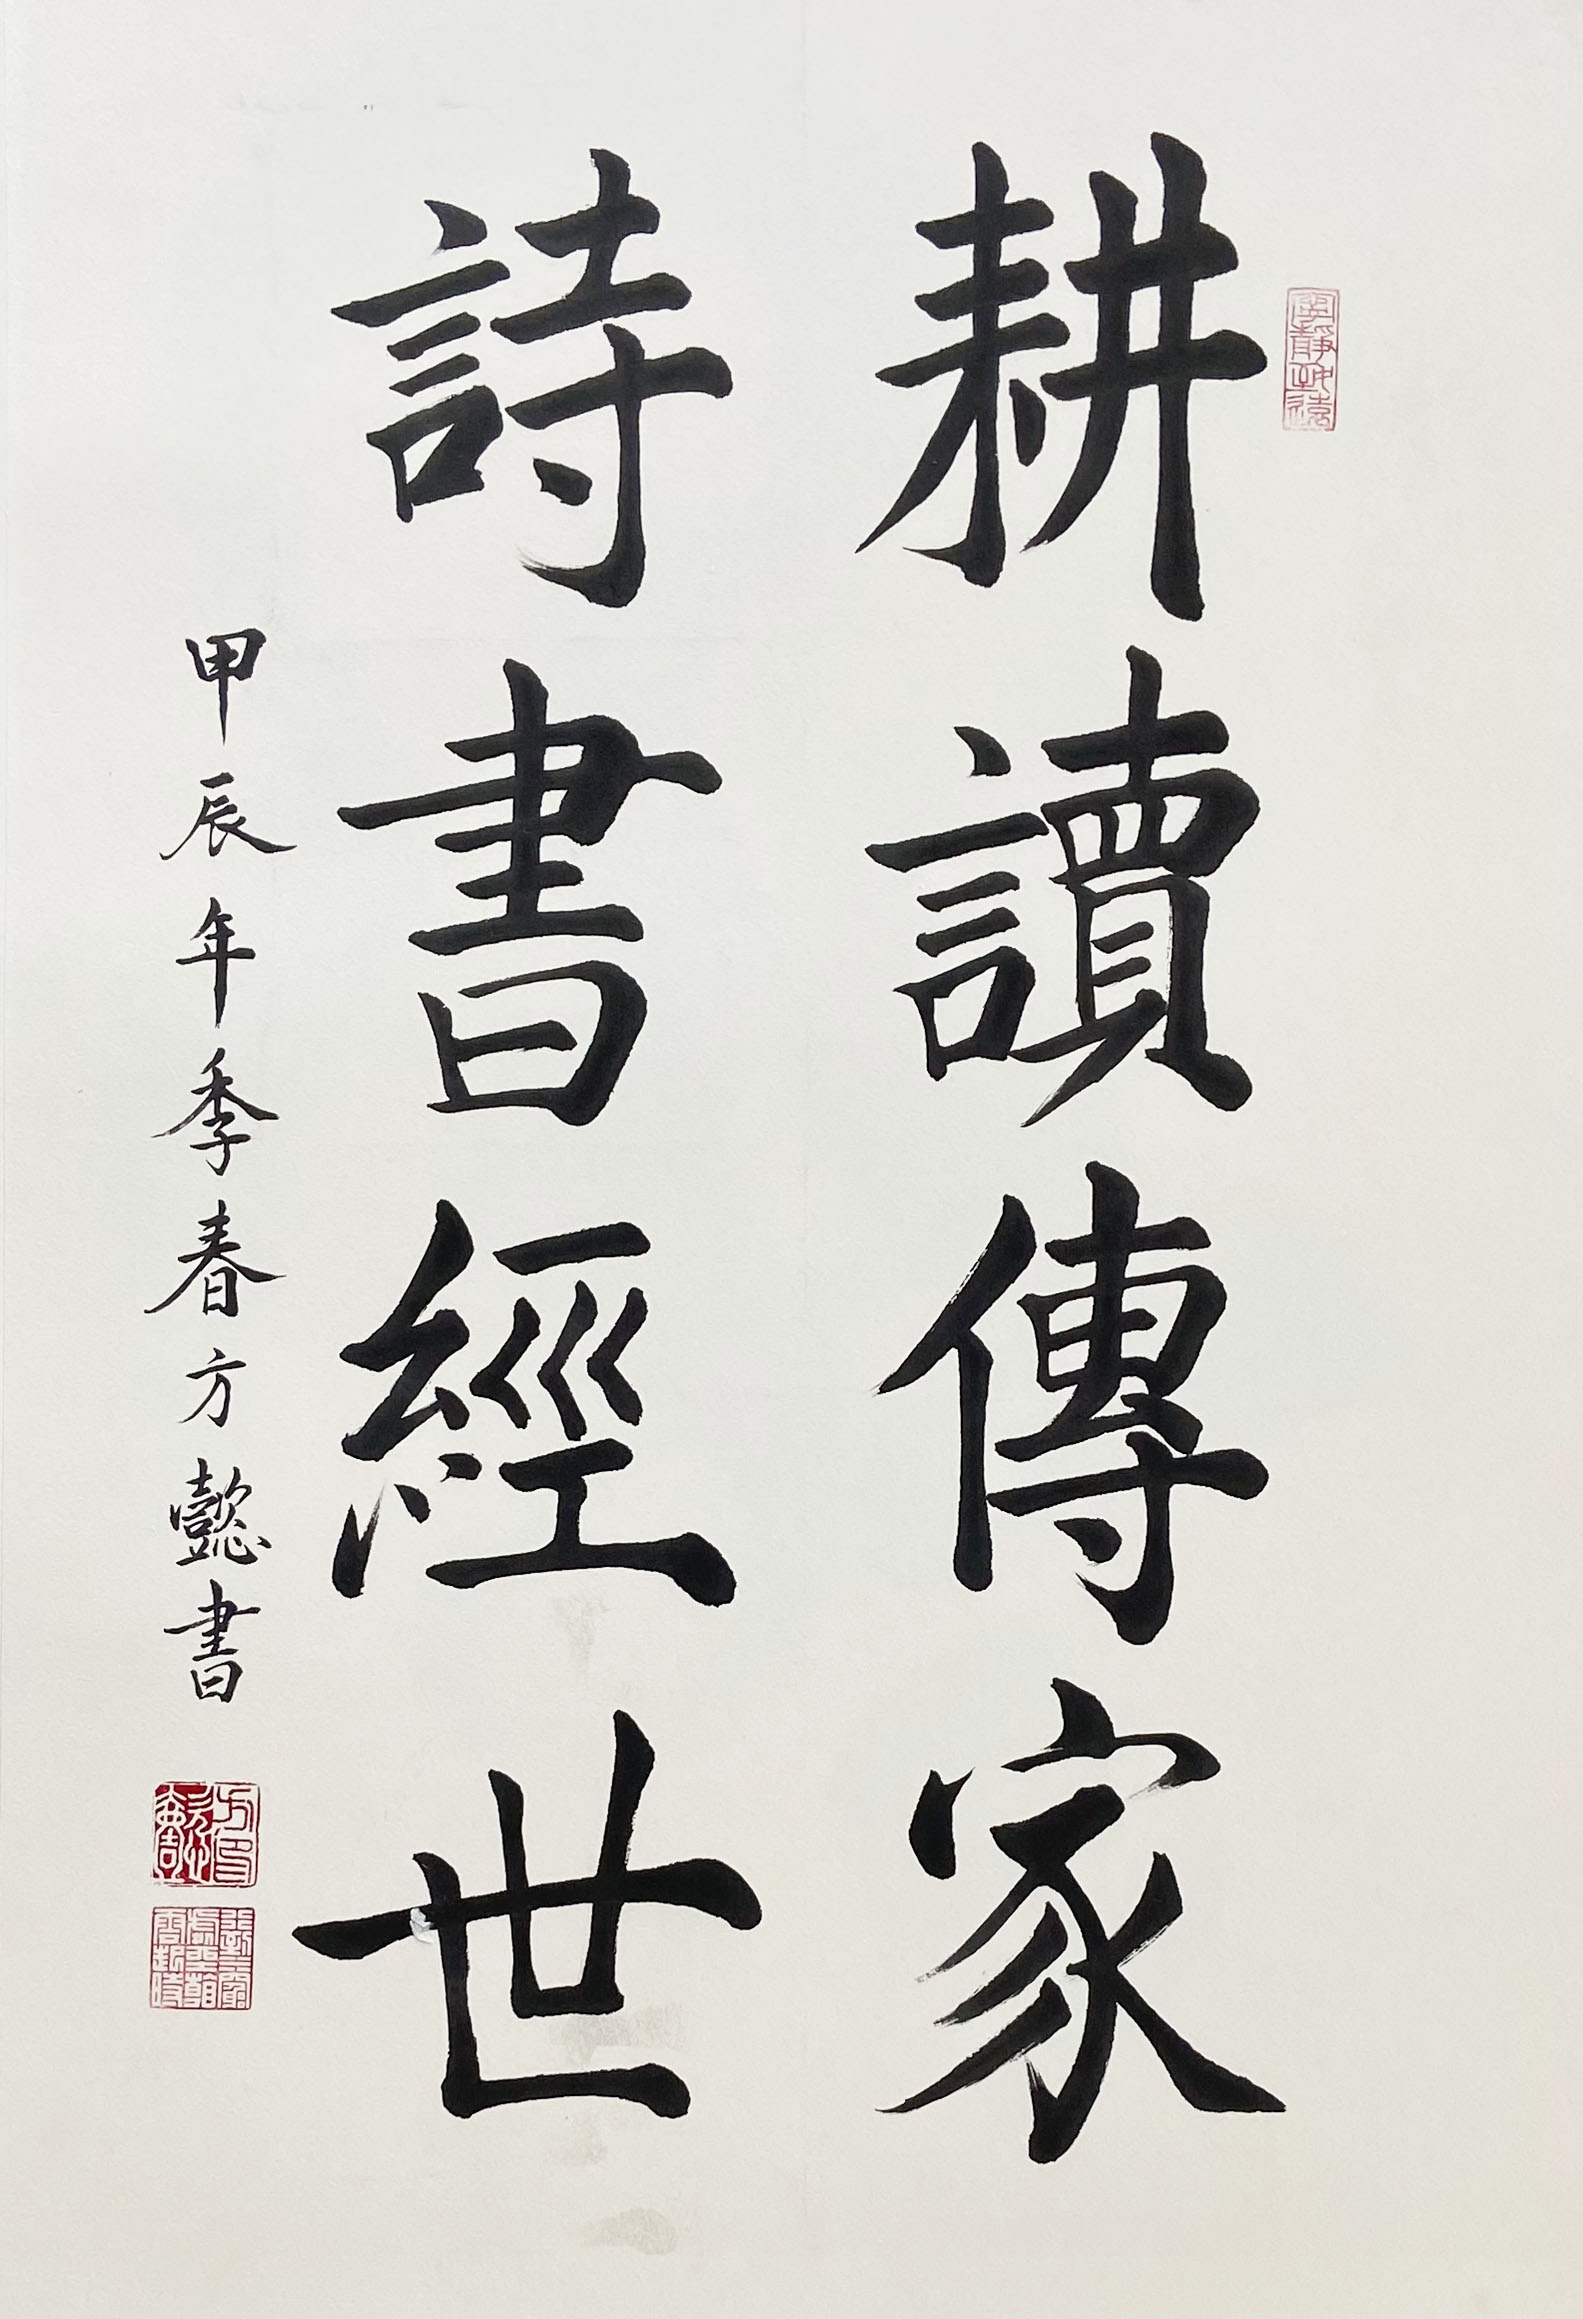 耕讀傳家
詩書經世
甲辰年季春方懿書
寧靜致遠